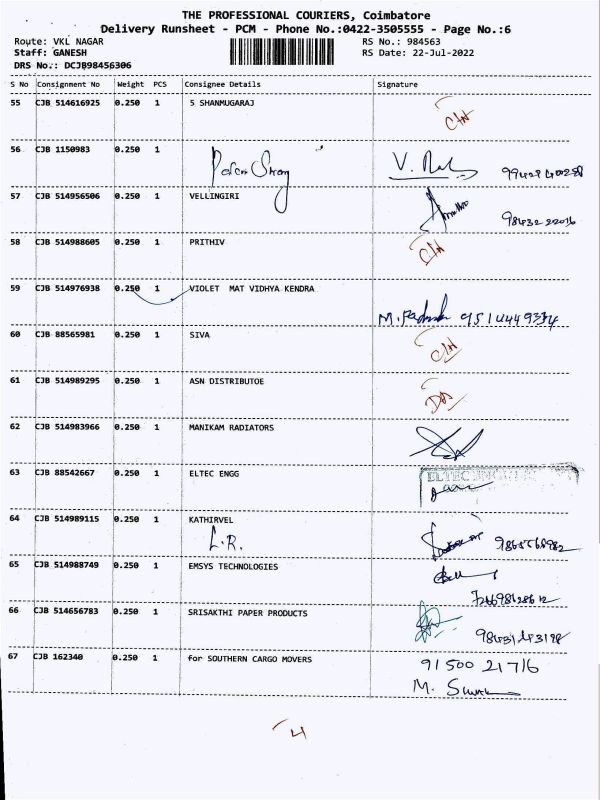 THE PROFESSIONAL COURIERS, Coimbatore
Delivery Runsheet - PCM - Phone No.:0422-3505555 - Page No.:6
Route: VKL NAGAR RS No.: 984563
Staff: GANESH RS Date: 22-Jul-2022
DRS No.: DCJB98456306
S No Consignment No Weight PCS Consignee Details Signature
55 CJB 514616925 0.250 1 S SHANMUGARAJ
C/N
56 CJB 1150983 0.250 1
V.
57 CJB 514956506 0.250 1 VELLINGIRI
58 CJB 514988605 0.250 1 PRITHIV
C/N
59 CJB 514976938 0.250 1 VIOLET MAT VIDHYA KENDRA
M.
60 CJB 88565981 0.250 1 SIVA
C/N
61 CJB 514989295 0.250 1 ASN DISTRIBUTOE
62 CJB 514983966 0.250 1 MANIKAM RADIATORS
63 CJB 88542667 0.250 1 ELTEC ENGG
ELTEC
64 CJB 514989115 0.250 1 KATHIRVEL
L.R.
65 CJB 514988749 0.250 1 EMSYS TECHNOLOGIES
66 CJB 514656783 0.250 1 SRISAKTHI PAPER PRODUCTS
67 CJB 162340 0.250 1 for SOUTHERN CARGO MOVERS
91500 21716
M.
4